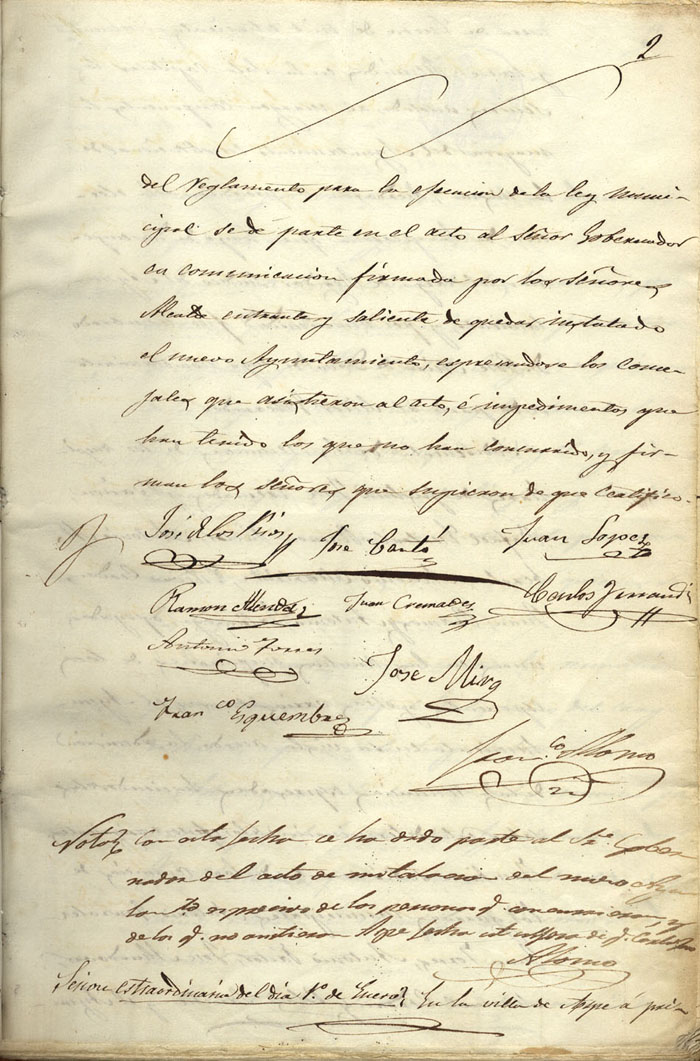 2
del reglamento para la ejecucion de la ley muni-
cipal se dé parte en el acto al Señor Gobernador
en comunicacion firmada por los Señores
Alcalde entrante y saliente de quedar instalado
el nuevo Ayuntamiento, espresandose los conce-
jales que asistieron al acto, é impedimentos que
han tenido los que no han concurrido, y fir-
man los Señores que supieron de que certifico.
José de los Rios José Cantó Juan Lopez
Ramon Juan Cremades Carlos
Antonio Torres
José Mira
Franco Esquembre
Franco Alonso
Nota Con esta fecha se ha dado parte al Sr. Gober
nador del acto de instalacion del nuevo Ayun
tamto espresivo de las personas q. concurrieron, y
de los q. no Aspe fecha de q. Certifico
Alonso
Sesion estraordinaria del dia 1º de Enero En la villa de Aspe á pri-